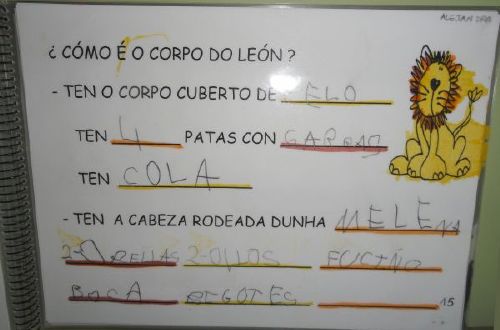 ALEJANDRO
¿ CÓMO É O CORPO DO LEÓN ?
- TEN O CORPO CUBERTO DE PELO
TEN 4 PATAS CON GARRAS
TEN COLA
- TEN A CABEZA RODEADA DUNHA MELENA
2-ORELLAS 2-OLLOS FUCIÑO
BOCA BIGOTES
15